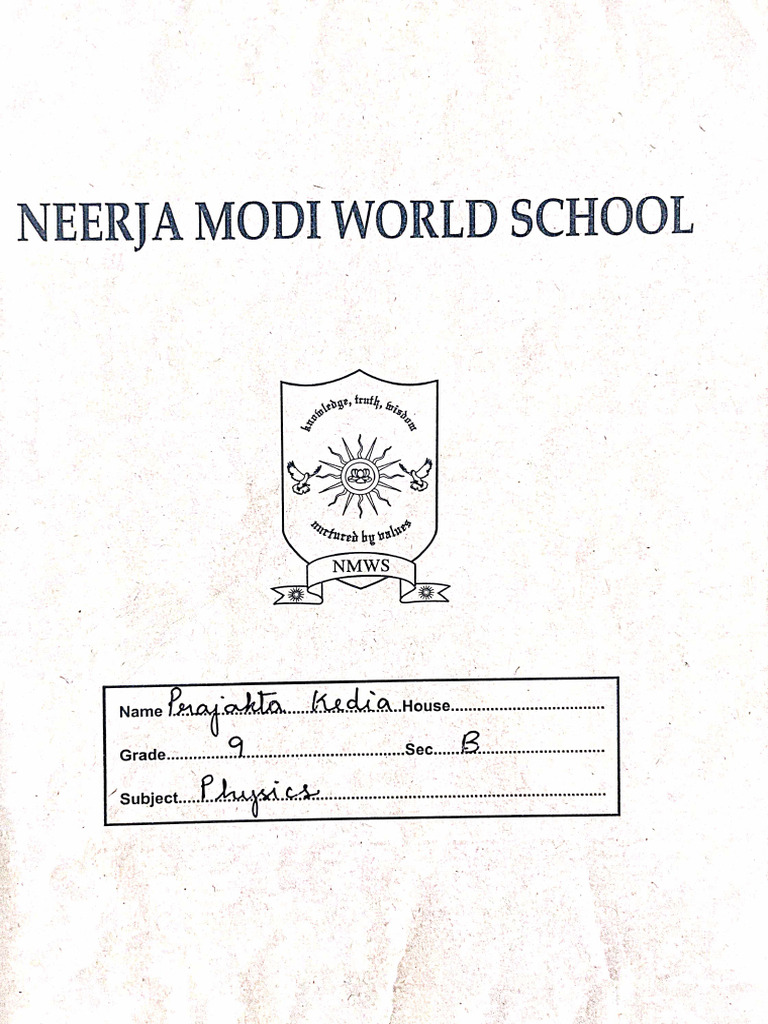 NEERJA MODI WORLD SCHOOL
knowledge, truth, wisdom
nurtured by values
NMWS
Name Prajakta Kedia House
Grade 9 Sec B
Subject Physics